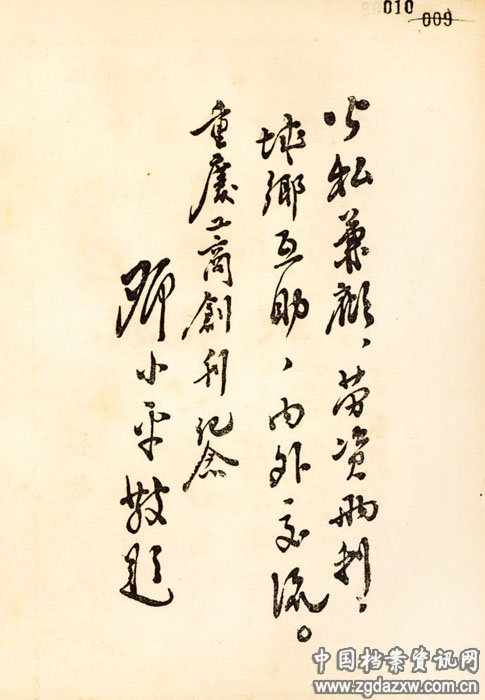 010
009
公私兼顧、勞資兩利、
城鄉互助、内外交流。
重慶工商創刊紀念
鄧小平敬題
中国档案资讯网
www.zgdazxw.com.cn